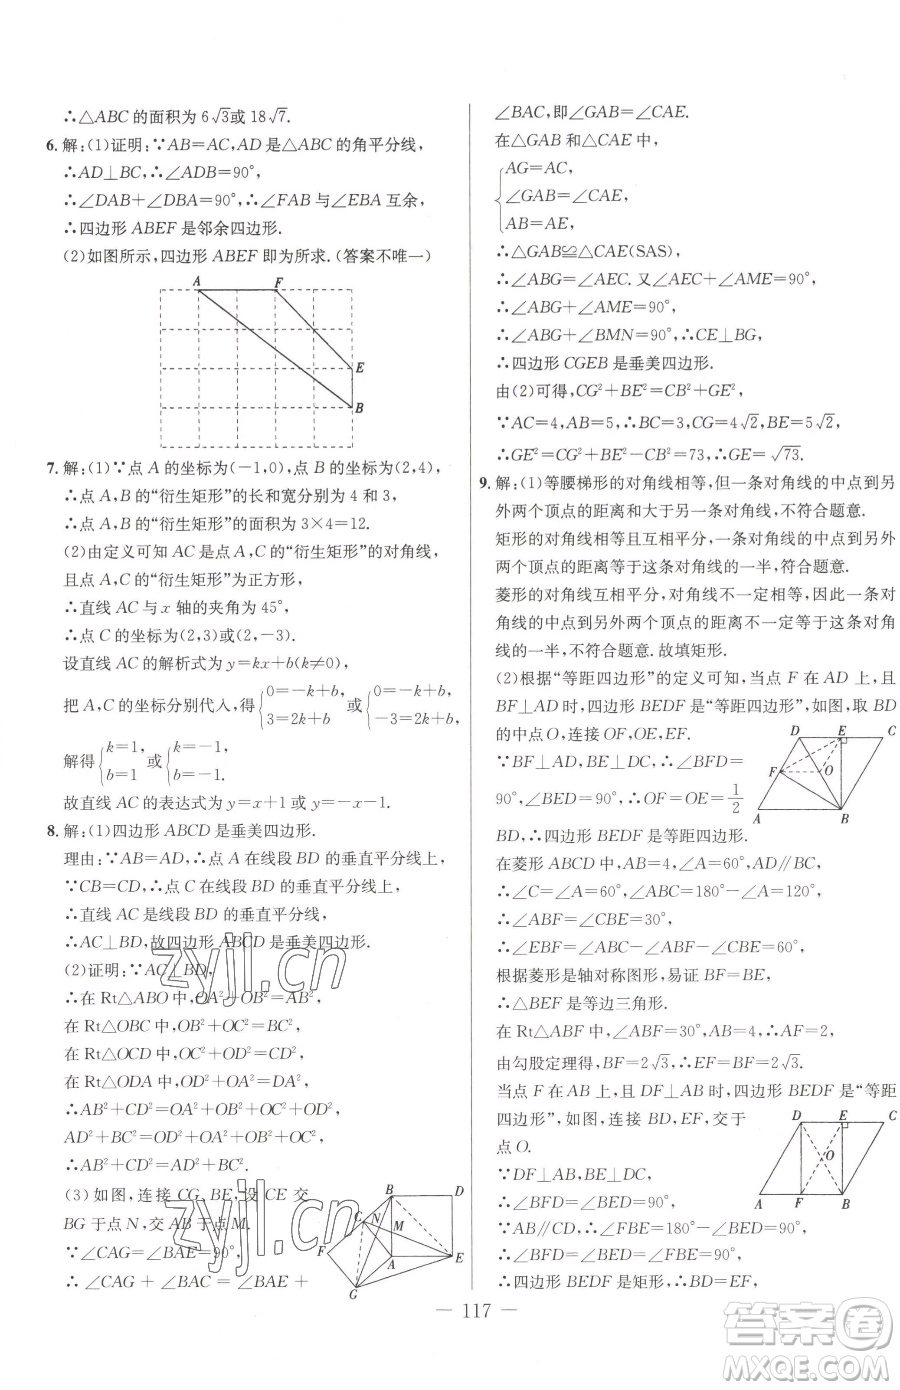 ∴△ABC的面积为6√3或18√7.
6. 解:(1)证明:∵AB=AC,AD是△ABC的角平分线,
∴AD⊥BC,∴∠ADB=90°,
∴∠DAB+∠DBA=90°,∴∠FAB与∠EBA互余,
∴四边形ABEF是邻余四边形.
(2)如图所示,四边形ABEF即为所求.(答案不唯一)
A F
E
B
7. 解:(1)∵点A的坐标为(-1,0),点B的坐标为(2,4),
∴点A,B的“衍生矩形”的长和宽分别为4和3,
∴点A,B的“衍生矩形”的面积为3×4=12.
(2)由定义可知AC是点A,C的“衍生矩形”的对角线,
且点A,C的“衍生矩形”为正方形,
∴直线AC与x轴的夹角为45°,
∴点C的坐标为(2,3)或(2,-3).
设直线AC的解析式为y=kx+b(k≠0),
把A,C的坐标分别代入,得{0=-k+b, 3=2k+b 或{0=-k+b, -3=2k+b,
解得{k=1, b=1 或{k=-1, b=-1.
故直线AC的表达式为y=x+1或y=-x-1.
8. 解:(1)四边形ABCD是垂美四边形.
理由:∵AB=AD,∴点A在线段BD的垂直平分线上,
∵CB=CD,∴点C在线段BD的垂直平分线上,
∴直线AC是线段BD的垂直平分线,
∴AC⊥BD,故四边形ABCD是垂美四边形.
(2)证明:∵AC⊥BD,
∴在Rt△ABO中,OA²+OB²=AB²,
在Rt△OBC中,OB²+OC²=BC²,
在Rt△OCD中,OC²+OD²=CD²,
在Rt△ODA中,OD²+OA²=DA²,
∴AB²+CD²=OA²+OB²+OC²+OD²,
AD²+BC²=OD²+OA²+OB²+OC²,
∴AB²+CD²=AD²+BC².
(3)如图,连接CG,BE,设CE交
BG于点N,交AB于点M.
∵∠CAG=∠BAE=90°,
∴∠CAG+∠BAC=∠BAE+
B D
C N M
F A E
G
∠BAC,即∠GAB=∠CAE.
在△GAB和△CAE中,
AG=AC,
∠GAB=∠CAE,
AB=AE,
∴△GAB≌△CAE(SAS)
∴∠ABG=∠AEC.又∠AEC+∠AME=90°,
∴∠ABG+∠AME=90°,
∴∠ABG+∠BMN=90°,∴CE⊥BG,
∴四边形CGEB是垂美四边形.
由(2)可得,CG²+BE²=CB²+GE²,
∵AC=4,AB=5,∴BC=3,CG=4√2,BE=5√2,
∴GE²=CG²+BE²-CB²=73,∴GE=√73.
9. 解:(1)等腰梯形的对角线相等,但一条对角线的中点到另
外两个顶点的距离和大于另一条对角线,不符合题意.
矩形的对角线相等且互相平分,一条对角线的中点到另外
两个顶点的距离等于这条对角线的一半,符合题意.
菱形的对角线互相平分,对角线不一定相等,所以一条对
角线的中点到另外两个顶点的距离不一定等于这条对角
线的一半,不符合题意.故填矩形.
(2)根据“等距四边形”的定义可知,当点F在AD上,且
BF⊥AD时,四边形BEDF是“等距四边形”,如图,取BD
的中点O,连接OF,OE,EF.
∵BF⊥AD,BE⊥CD,∴∠BFD=
∠BED=90°,∴OF=OE=1/2
BD,∴四边形BEDF是“等距四边形”.
D E C
F O
A B
在菱形ABCD中,AB=4,∠A=60°,AD∥BC,
∴∠C=∠A=60°,∠ABC=180°-∠A=120°,
∴∠ABF=∠CBE=30°,
∴∠EBF=∠ABC-∠ABF-∠CBE=60°,
根据菱形是轴对称图形,易证BF=BE,
∴△BEF是等边三角形.
在Rt△ABF中,∠ABF=30°,AB=4,∴AF=2,
由勾股定理得,BF=2√3,∴EF=BF=2√3.
当点F在AB上,且DF⊥AB时,四边形BEDF是“等距
四边形”,如图,连接BD,EF,交于
点O.
∵DF⊥AB,BE⊥CD,
∴∠BFD=∠BED=90°,
∵AB∥CD,∴∠FBE=180°-∠BED=90°,
∴∠BFD=∠BED=∠FBE=90°,
∴四边形BEDF是矩形,∴BD=EF,
D E C
O
A F B
— 117 —
zyjl.cn
zyjl.cn
答案卷
MXQE.COM